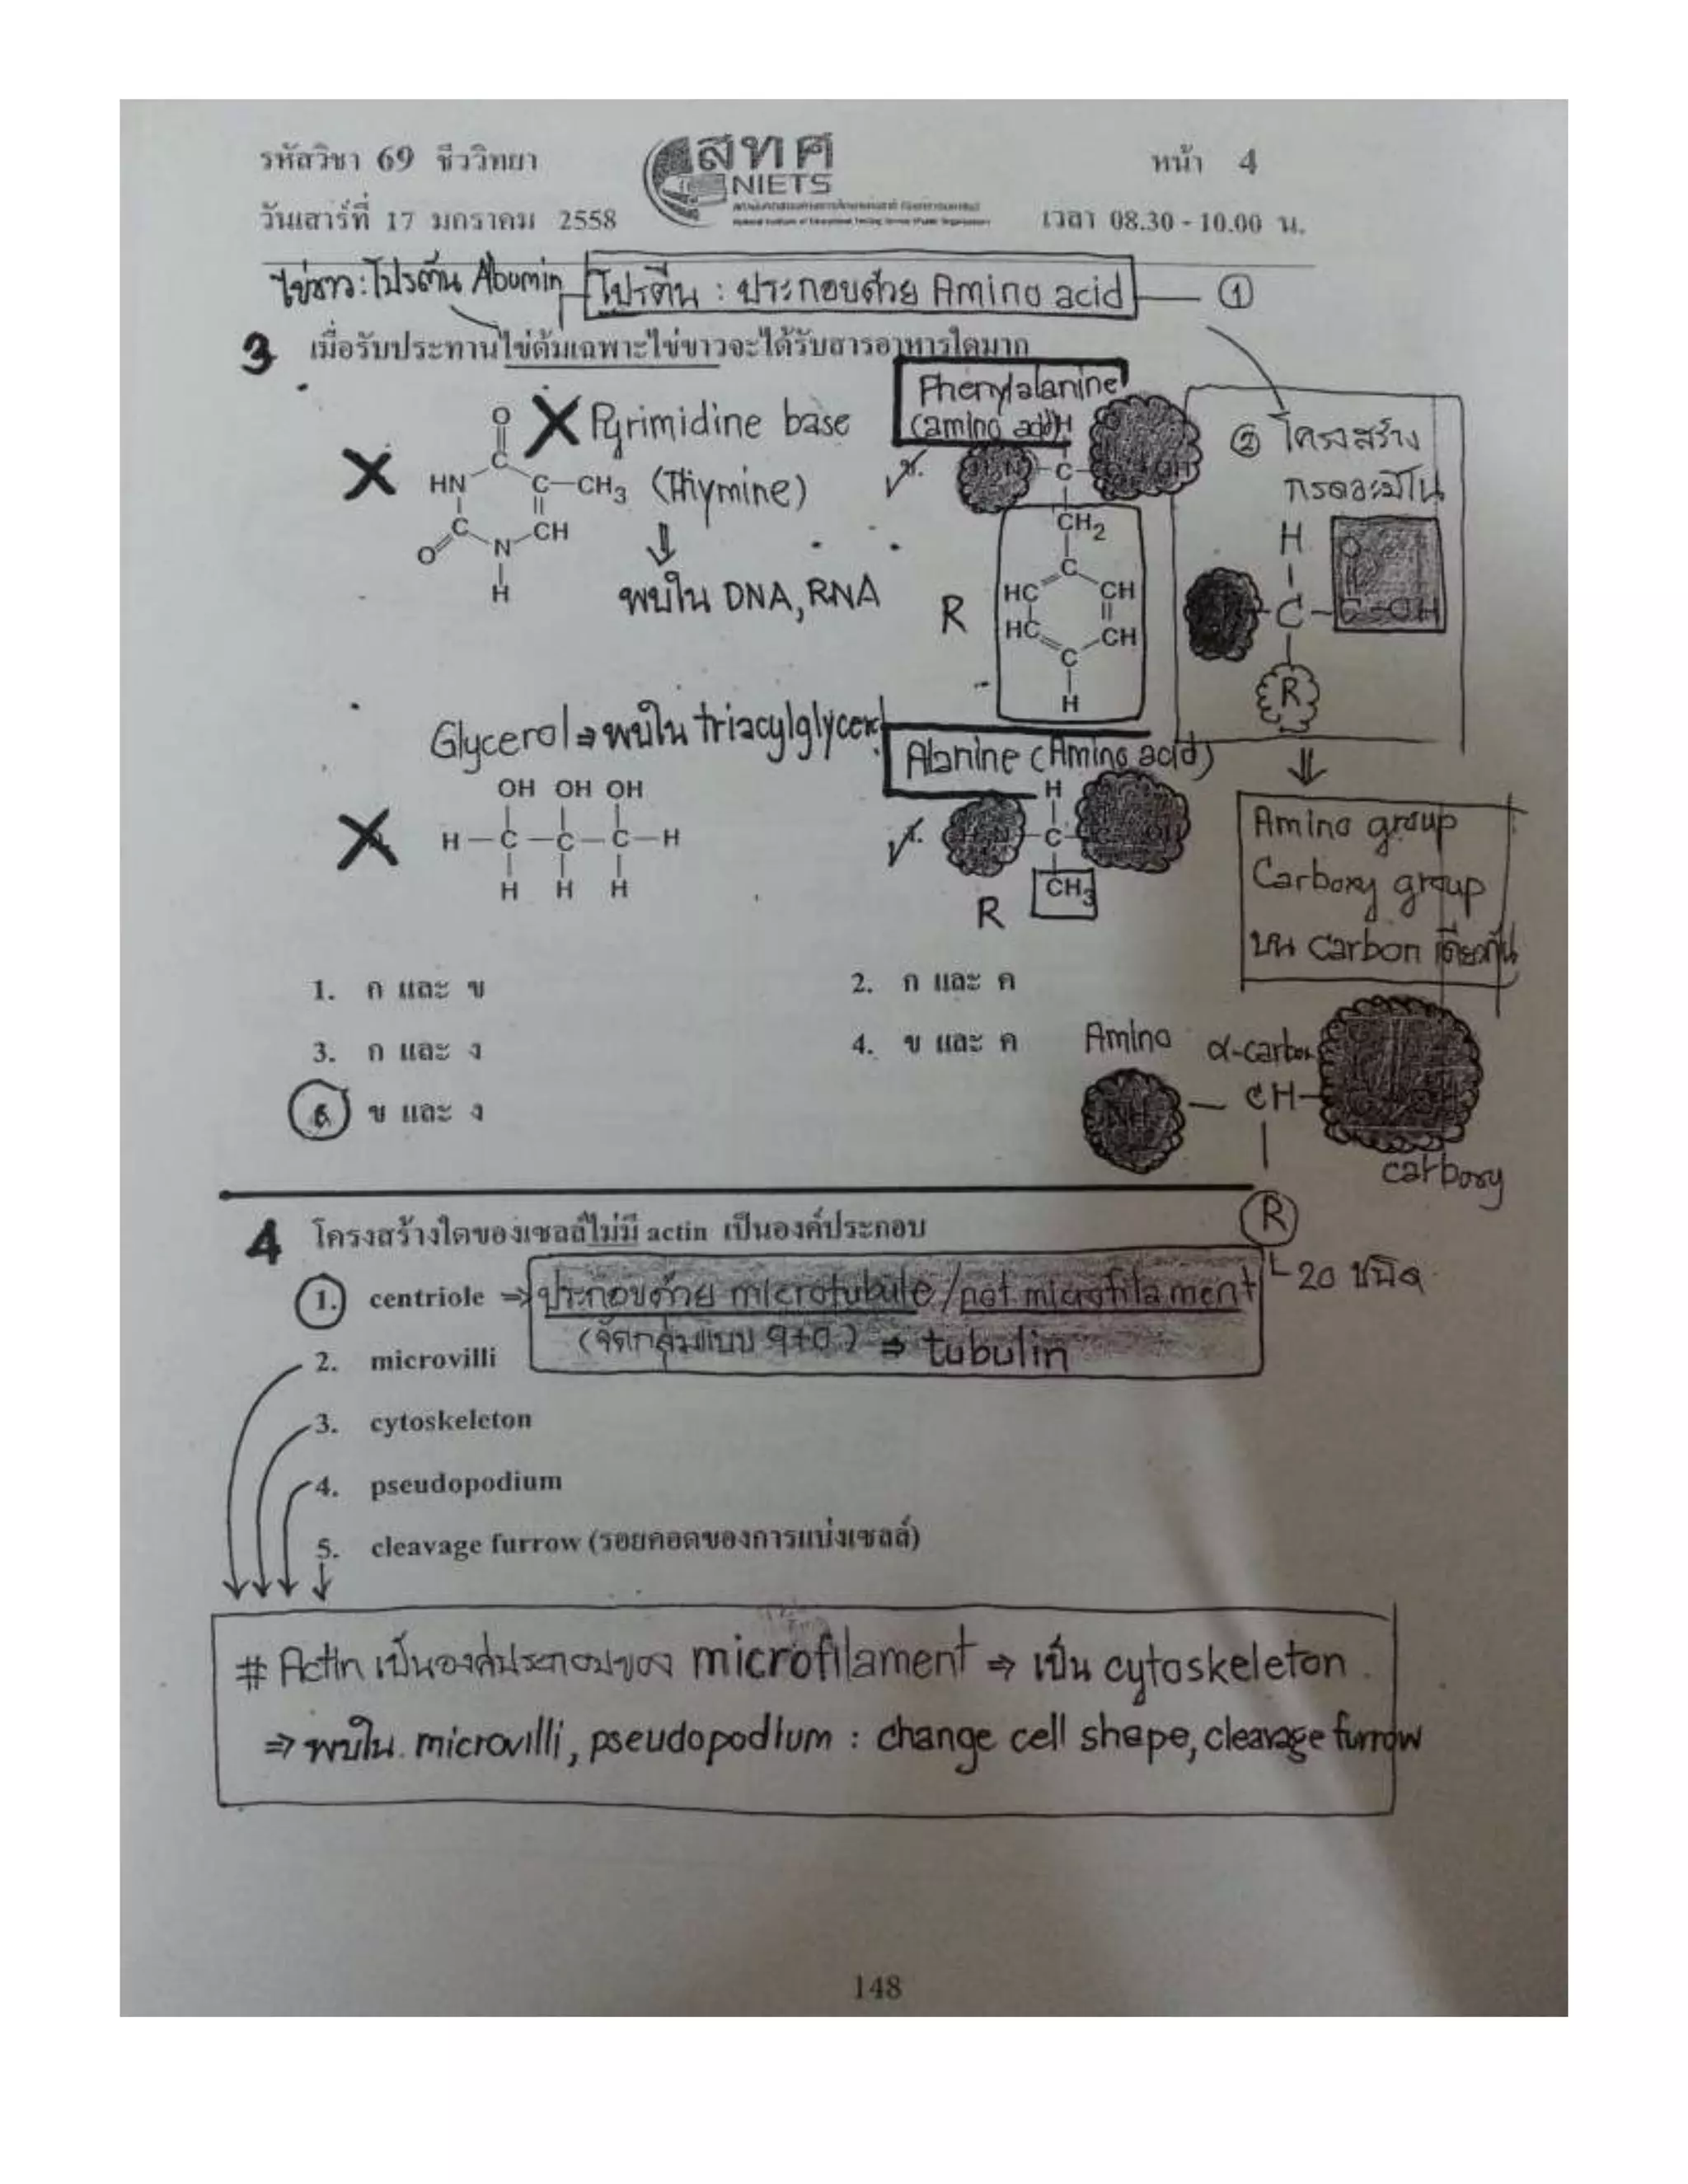 รหัสวิชา 69 ชีววิทยา
สทศ
NIETS
หน้า 4
วันเสาร์ที่ 17 มกราคม 2558
เวลา 08.30 - 10.00 น.
ไข่ขาว : โปรตีน Albumin
โปรตีน : ประกอบด้วย Amino acid
①
3 เมื่อรับประทานไข่ต้มเฉพาะไข่ขาวจะได้รับสารอาหารใดมาก
Pyrimidine base
(Thymine)
พบใน DNA, RNA
O
C
HN C-CH3
C CH
O N
H
Phenylalanine
(amino acid)
H
C
CH2
C
HC CH
HC CH
C
H
R
② โครงสร้าง
กรดอะมิโน
H
C-C-OH
R
Glycerol ⇒ พบใน triacylglycerol
OH OH OH
H-C-C-C-H
H H H
Alanine (Amino acid)
H
C
CH3
R
Amino group
Carboxy group
บน carbon เดียวกัน
1. ก และ ข
2. ก และ ค
3. ก และ ง
4. ข และ ค
ข และ ง
Amino
α-carbon
CH
carboxy
R
20 ชนิด
4 โครงสร้างใดของเซลล์ไม่มี actin เป็นองค์ประกอบ
1. centriole ⇒ ประกอบด้วย microtubule / not microfilament
(จัดกลุ่มแบบ 9+0) ⇒ tubulin
2. microvilli
3. cytoskeleton
4. pseudopodium
5. cleavage furrow (รอยคอดของการแบ่งเซลล์)
# Actin เป็นองค์ประกอบของ microfilament ⇒ เป็น cytoskeleton
⇒ พบใน microvilli, pseudopodium : change cell shape, cleavage furrow
148